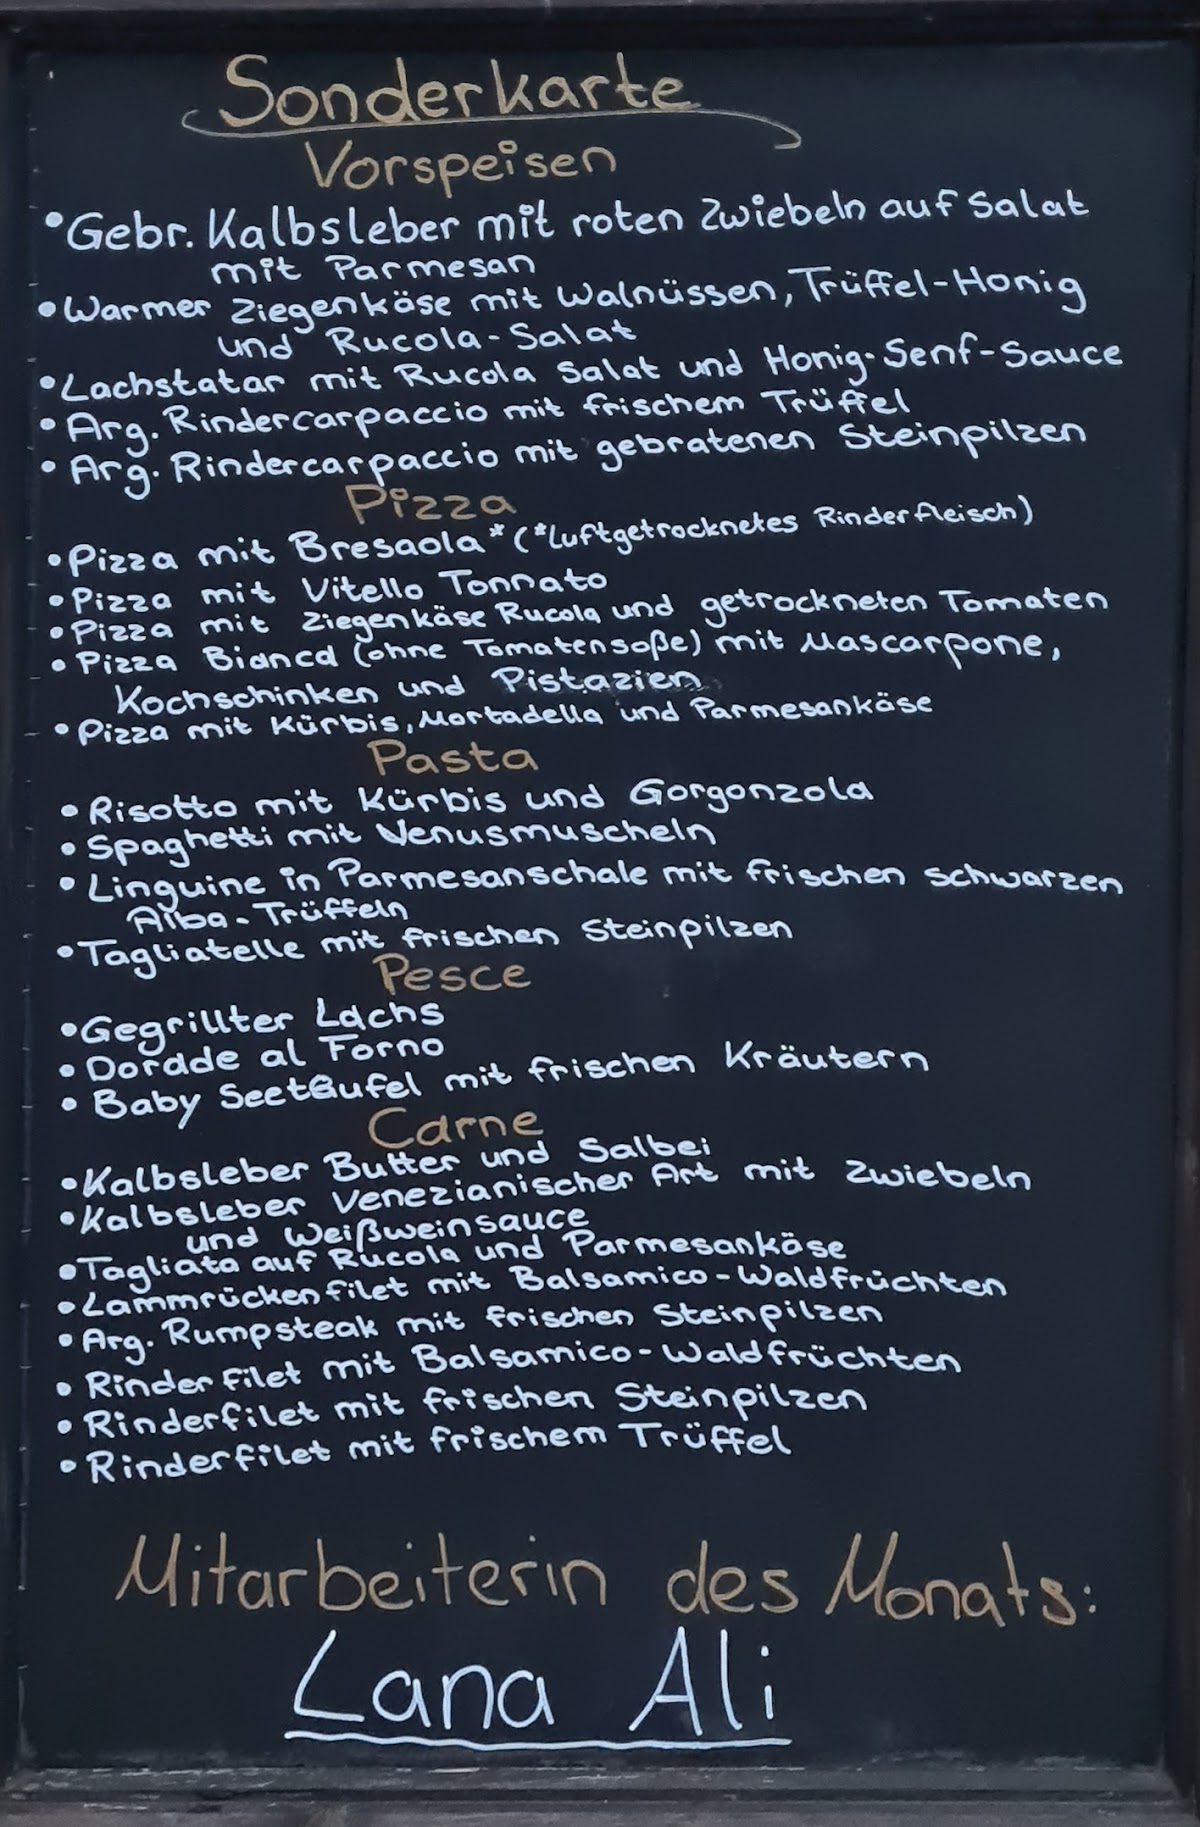 Sonderkarte
Vorspeisen
•Gebr. Kalbsleber mit roten Zwiebeln auf Salat
mit Parmesan
•Warmer Ziegenkäse mit Walnüssen, Trüffel-Honig
und Rucola-Salat
•Lachstatar mit Rucola Salat und Honig-Senf-Sauce
• Arg. Rindercarpaccio mit frischem Trüffel
• Arg. Rindercarpaccio mit gebratenen Steinpilzen
Pizza
•Pizza mit Bresaola* (*luftgetrocknetes Rinderfleisch)
•Pizza mit Vitello Tonnato
•Pizza mit Ziegenkäse Rucola und getrockneten Tomaten
• Pizza Bianca (ohne Tomatensoße) mit Mascarpone,
Kochschinken und Pistazien
•Pizza mit Kürbis, Mortadella und Parmesankäse
Pasta
• Risotto mit Kürbis und Gorgonzola
• Spaghetti mit Venusmuscheln
• Linguine in Parmesanschale mit frischen schwarzen
Alba-Trüffeln
•Tagliatelle mit frischen Steinpilzen
Pesce
•Gegrillter Lachs
• Doradde al Forno
• Baby Seeteufel mit frischen Kräutern
Carne
•Kalbsleber Butter und Salbei
•Kalbsleber Venezianischer Art mit Zwiebeln
und Weißweinsauce
•Tagliata auf Rucola und Parmesankäse
•Lammrückenfilet mit Balsamico-Waldfrüchten
• Arg. Rumpsteak mit frischen Steinpilzen
• Rinderfilet mit Balsamico-Waldfrüchten
• Rinderfilet mit frischen Steinpilzen
• Rinderfilet mit frischem Trüffel
Mitarbeiterin des Monats:
Lana Ali